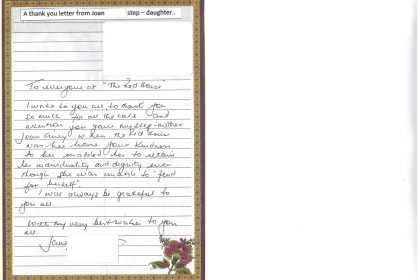 A thank you letter from Joan step – daughter..
To everyone at "The Red House"
I write to you all to thank you
so much for all the care and
attention you gave my step-mother
Joan when The Red House
was her home. Your kindness
to her enabled her to retain
her individuality and dignity even
though she was unable to "fend
for herself".
I will always be grateful to
you all.
With my very best wishes to you
all.